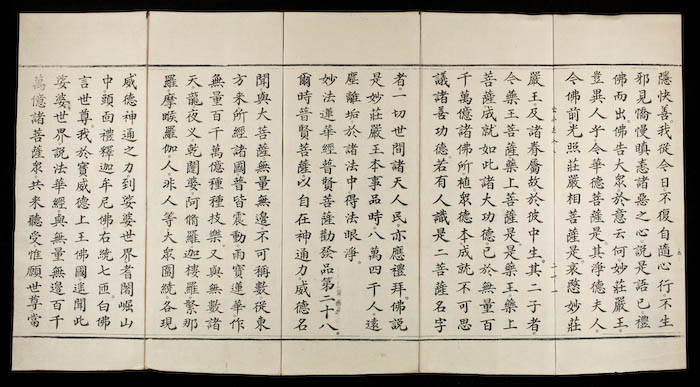 隱快善我從今日不復自隨心行不生
邪見憍慢瞋恚諸惡之心說是語已禮
佛而出佛告大眾於意云何妙莊嚴王
豈異人乎今華德菩薩是其淨德夫人
今佛前光照莊嚴相菩薩是哀愍妙莊
嚴王及諸眷屬故於彼中生其二子者
今藥王菩薩藥上菩薩是是藥王藥上
菩薩成就如此諸大功德已於無量百
千萬億諸佛所植眾德本成就不可思
議諸善功德若有人識是二菩薩名字
者一切世間諸天人民亦應禮拜佛說
是妙莊嚴王本事品時八萬四千人遠
塵離垢於諸法中得法眼淨
妙法蓮華經普賢菩薩勸發品第二十八
爾時普賢菩薩以自在神通力威德名
聞與大菩薩無量無邊不可稱數從東
方來所經諸國普皆震動雨寶蓮華作
無量百千萬億種種技樂又與無數諸
天龍夜叉乾闥婆阿脩羅迦樓羅緊那
羅摩睺羅伽人非人等大眾圍繞各現
威德神通之力到娑婆世界耆闍崛山
中頭面禮釋迦牟尼佛右繞七匝白佛
言世尊我於寶威德上王佛國遙聞此
娑婆世界說法華經與無量無邊百千
萬億諸菩薩眾共來聽受惟願世尊當